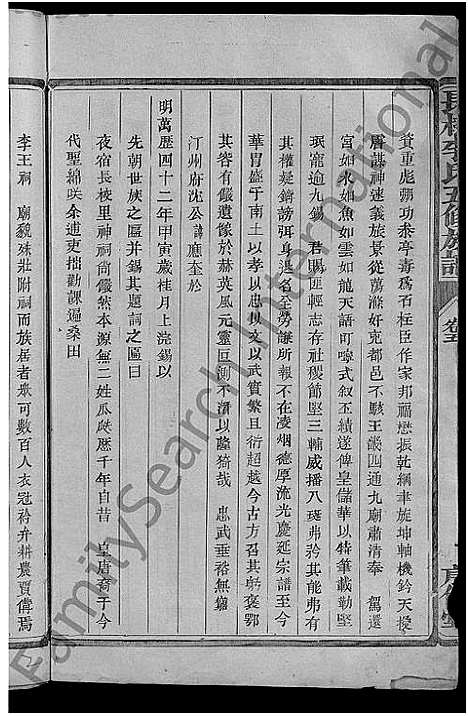 長校李氏五修族譜 卷五
資重彪炳功參亭毒為石柱臣作家邦福懋振乾綱聿旋坤軸機鈐天授
廟謀神速義旅景從萬滌奸克都邑不駭王畿四通九廟肅清奉 駕還
宮如水如魚如雲如龍天語叮嚀式叙丕績遂俾皇儲華以特筆載勒堅
珉寵逾九錫 君賜匪輕志存社稷節堅三輔威播八埏弗矜其能弗有
其權疑鑄謗弭身退名全勞謙所報不在凌烟德厚流光慶延宗譜至今
華胄盛于南土以孝以忠以文以武實繁且衍超越今古方召其躬褒鄂
其容有儼遺像於赫英風元靈叵測不潛以隆猗哉 忠武垂裕無窮
汀州府沈公諱應奎於
明萬歷四十二年甲寅歲桂月上浣錫以
先朝世族之匾并錫其題詞之匾曰
夜宿長校里神祠尚儼然本源無二姓瓜瓞歷千年自昔 皇唐裔于今
代聖綿咲余逋吏拙勸課遍桑田
李王祠 廟貌殊壯附祠而族居者衆可數百人衣冠衿弁耕農賈傅焉
FamilySearch International